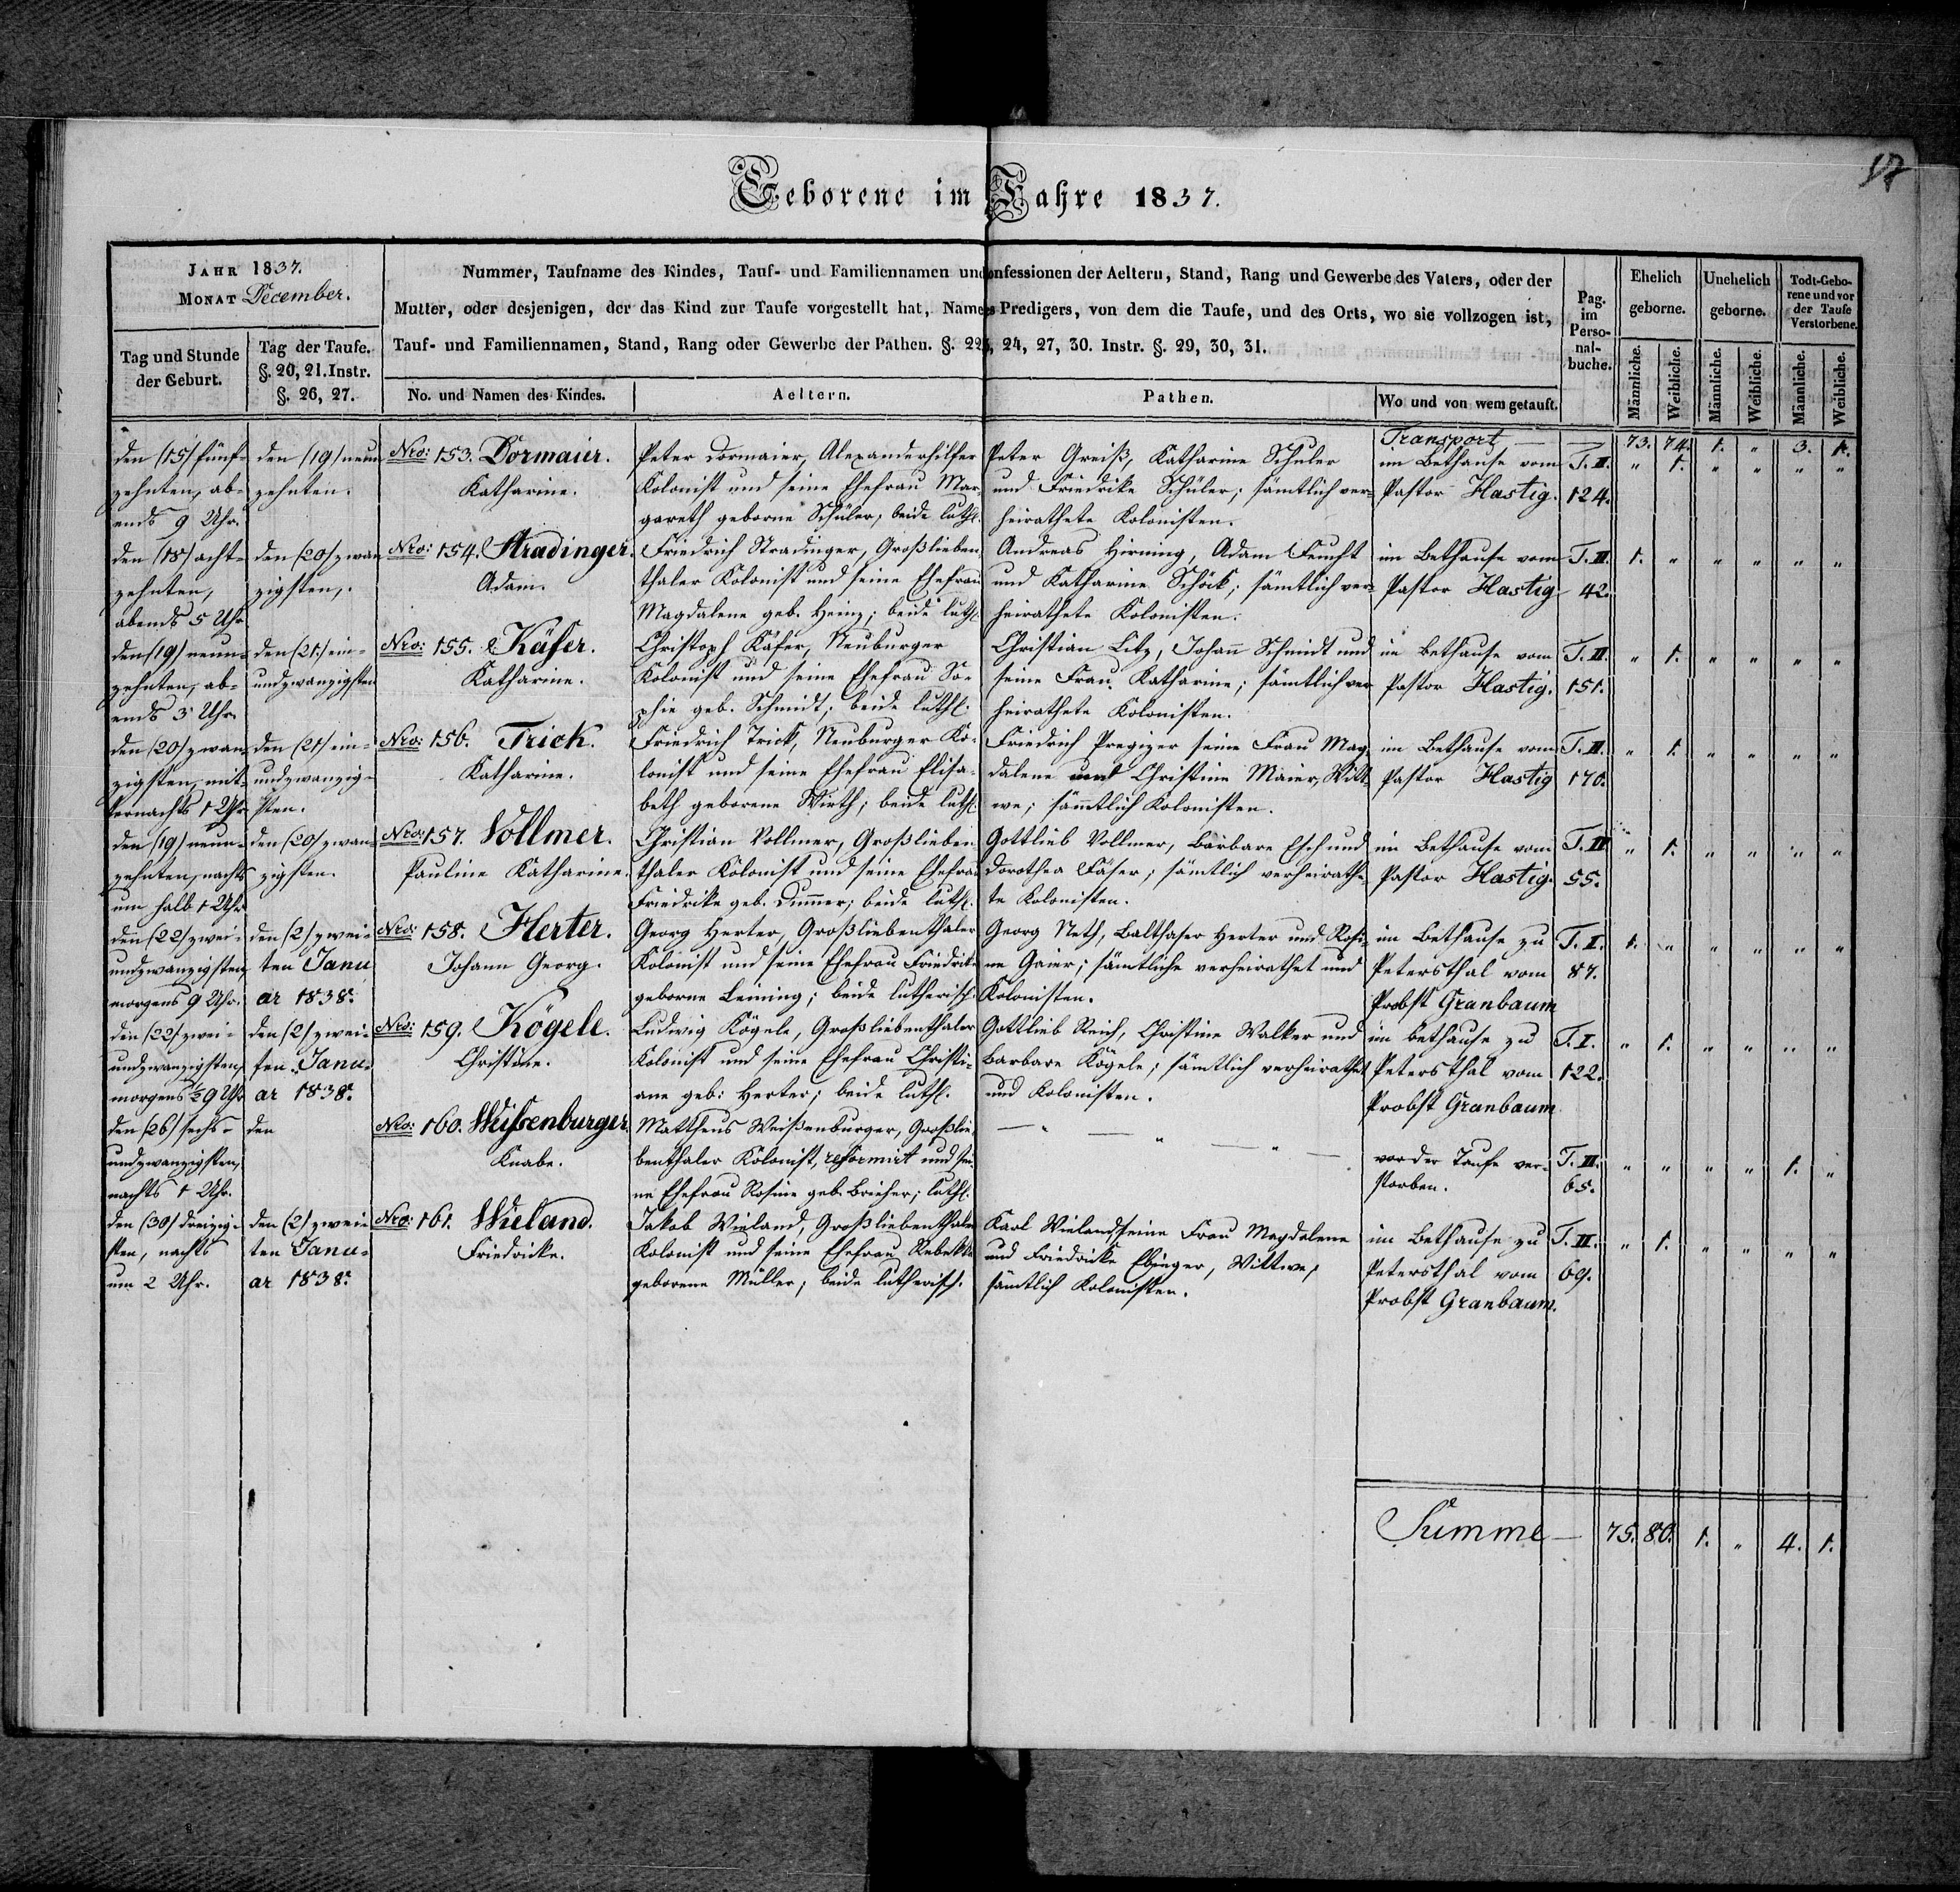 17
Geborene im Jahre 1837.
JAHR 1837.
MONAT December.
Nummer, Taufname des Kindes, Tauf- und Familiennamen und onfessionen der Aeltern, Stand, Rang und Gewerbe des Vaters, oder der
Mutter, oder desjenigen, der das Kind zur Taufe vorgestellt hat, Name s Predigers, von dem die Taufe, und des Orts, wo sie vollzogen ist,
Tauf- und Familiennamen, Stand, Rang oder Gewerbe der Pathen. §. 22, 24, 27, 30. Instr. §. 29, 30, 31.
Tag und Stunde
der Geburt.
Tag der Taufe.
§. 20, 21. Instr.
§. 26, 27.
No. und Namen des Kindes.
Aeltern.
Pathen.
Wo und von wem getauft.
Pag.
im
Perso-
nal-
buche.
Ehelich
geborne.
Unehelich
geborne.
Todt-Gebo-
rene und vor
der Taufe
Verstorbene.
Männliche.
Weibliche.
Männliche.
Weibliche.
Männliche.
Weibliche.
Transport — — 73. 74. 1. " 3. 1.
den (15) fünf-
zehnten, ab-
ends 9 Uhr.
den (19) neun
zehnten.
Nro: 153. Dormaier.
Katharine.
Peter Dormaier, Alexanderhilfer
Kolonist und seine Ehefrau Mar-
gareth geborne Schüler; beide luth.
Peter Greiß, Katharine Schüler
und Friedrike Schüler; sämtlich ver-
heirathete Kolonisten.
im Bethause vom
Pastor Hastig.
T. II.
124.
" 1. " " " "
den (18) acht-
zehnten,
abends 5 Uhr
den (20) zwan
zigsten.
Nro: 154. Stradinger.
Adam.
Friedrich Stradinger, Großlieben
thaler Kolonist und seine Ehefrau
Magdalene geb. Heinz; beide luth.
Andreas Hirning, Adam Feucht
und Katharine Schöck; sämtlich ver-
heirathete Kolonisten.
im Bethause vom
Pastor Hastig
T. III.
42.
1. " " " " "
den (19) neun-
zehnten, ab-
ends 3 Uhr.
den (21.) ein-
undzwanzigsten
Nro: 155. Käfer.
Katharine.
Christoph Käfer, Neuburger
Kolonist und seine Ehefrau So-
phie geb. Schmidt; beide luth.
Christian Litz, Johann Schmidt und
seine Frau Katharine; sämtlich ver
heirathete Kolonisten.
im Bethause vom
Pastor Hastig.
T. III.
151.
" 1. " " " "
den (20) zwan
zigsten, mit-
ternachts 1 Uhr
den (21) ein-
undzwanzig-
sten.
Nro: 156. Trick.
Katharine.
Friedrich Trick, Neuburger Ko-
lonist und seine Ehefrau Elisa-
beth geborene Wirth; beide luth.
Friedrich Pregizer seine Frau Mag
dalene und Christine Maier, Witt-
we; sämmtlich Kolonisten.
im Bethause vom
Pastor Hastig
T. III.
170.
" 1. " " " "
den (19) neun-
zehnten, nachts
um halb 1 Uhr
den (20) zwan-
zigsten.
Nro: 157. Vollmer.
Pauline Katharine.
Christian Vollmer, Großlieben
thaler Kolonist und seine Ehefrau
Friedrike geb. Dummer; beide luth.
Gottlieb Vollmer, Barbara Esch und
Dorothea Fäser; sämtlich verheirathe-
te Kolonisten.
im Bethause vom
Pastor Hastig.
T. III
55.
" 1. " " " "
den (22) zwei-
undzwanzigsten
morgens 9 Uhr.
den (2) zwei-
ten Janu
ar 1838.
Nro: 158. Herter.
Johann Georg.
Georg Herter, Großliebenthaler
Kolonist und seine Ehefrau Friedrike
geborne Leining; beide lutherisch
Georg Neth, Balthaser Herter und Rosi-
ne Gaier; sämtliche verheirathet und
Kolonisten.
im Bethause zu
Petersthal vom
Probst Granbaum
T. I.
87.
1. " " " " "
den (22) zwei-
undzwanzigsten
morgens ½9 Uhr
den (2) zwei-
ten Janu-
ar 1838.
Nro: 159. Kögele.
Christine.
Ludwig Kögele, Großliebenthaler
Kolonist und seine Ehefrau Christi-
ane geb: Herter; beide luth.
Gottlieb Reich, Christine Walker und
Barbara Kögele; sämtlich verheirathet
und Kolonisten.
im Bethause zu
Petersthal vom
Probst Granbaum
T. I.
122.
" 1. " " " "
den (26) sechs-
undzwanzigsten,
nachts 1 Uhr.
den
Nro: 160. Weißenburger.
Knabe.
Mattheus Weißenburger, Großlie-
benthaler Kolonist, reformirt und sei-
ne Ehefrau Rosine geb. Bricher; luth.
— " — " — " —
vor der Taufe ver-
storben.
T. III.
65.
" " " " 1. "
den (30) dreizig-
sten, nachts
um 2 Uhr.
den (2) zwei-
ten Janu-
ar 1838.
Nro: 161. Wieland.
Friedricke.
Jakob Wieland, Großliebenthaler
Kolonist und seine Ehefrau Rebekka
geborene Müller; beide lutherisch.
Karl Wieland seine Frau Magdalene
und Friedricke Ebinger, Wittwe;
sämtlich Kolonisten.
im Bethause zu
Petersthal vom
Probst Granbaum.
T. III.
69.
" 1. " " " "
Summe — 75. 80. 1. " 4. 1.